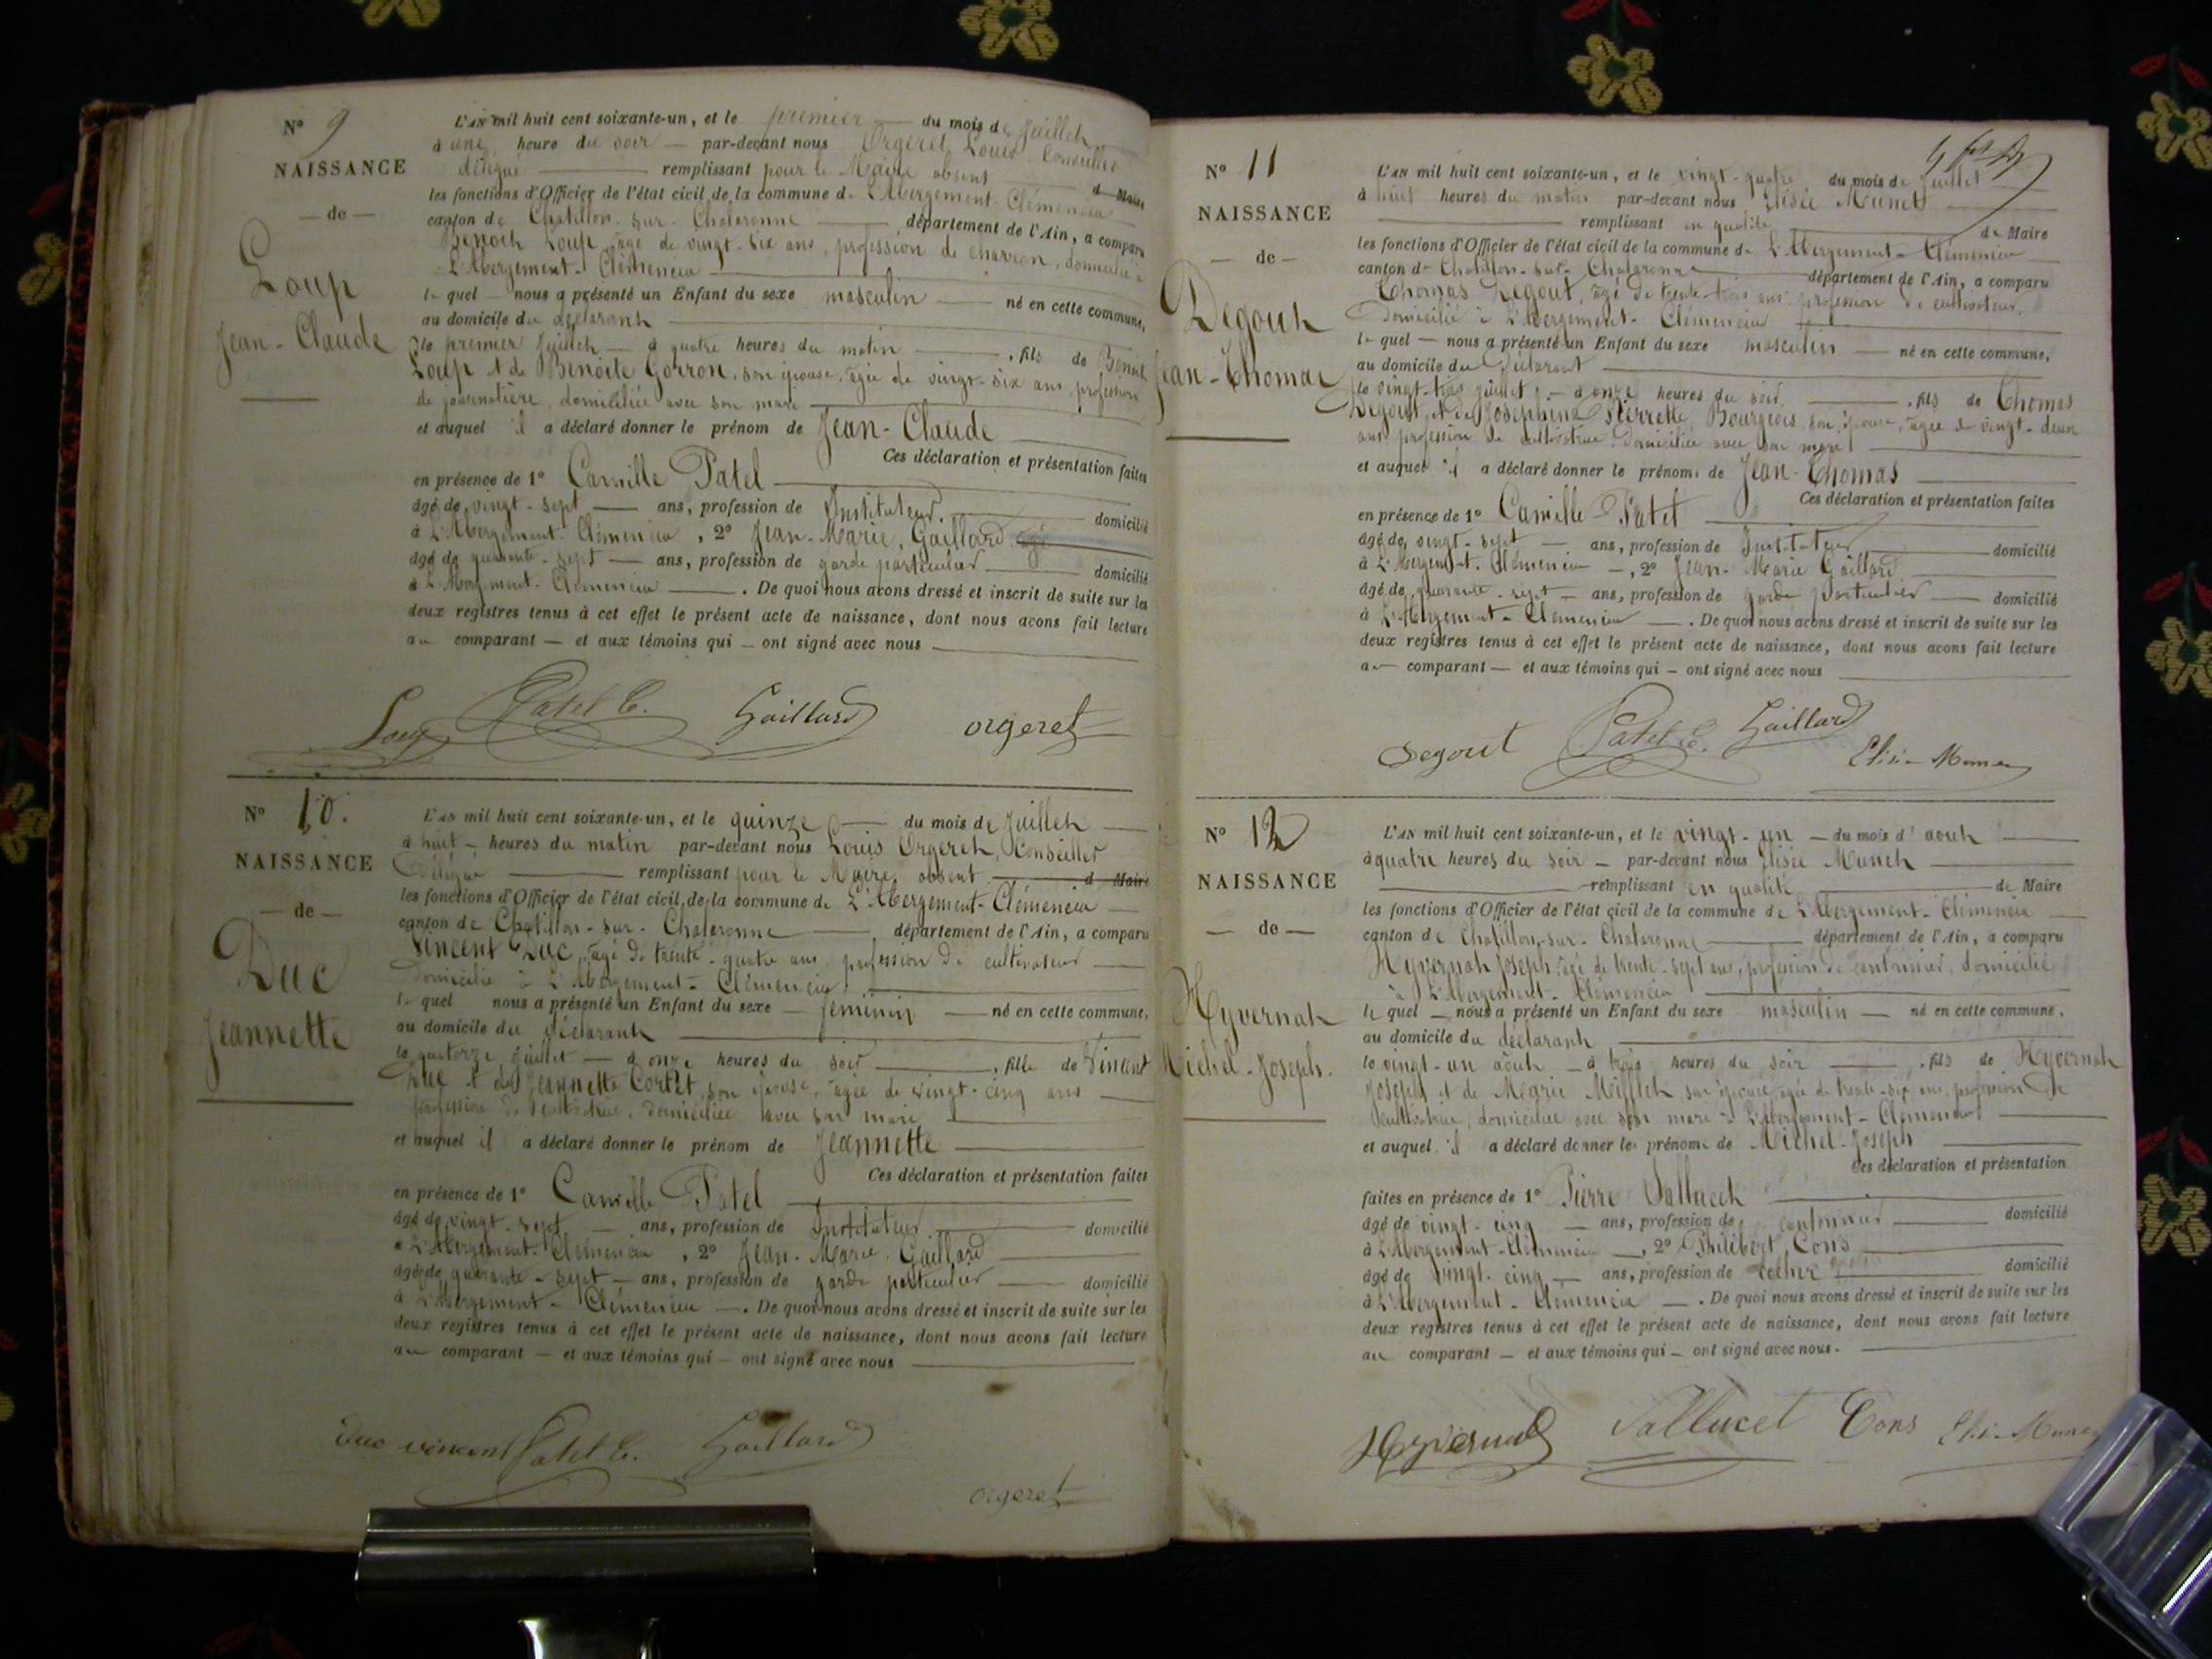 N° 9
NAISSANCE
— de —
Loup
Jean-Claude
L'AN mil huit cent soixante-un, et le premier — du mois de Juillet
à une heure du soir — par-devant nous Orgeret Louis, Conseiller
délégué — remplissant pour le Maire absent — d Maire
les fonctions d'Officier de l'état civil de la commune de L'Abergement-Clémencia
canton de Chatillon-sur-Chalaronne — département de l'Ain, a comparu
Benoit Loup, âgé de vingt-six ans, profession de charron, domicilié à
L'Abergement-Clémencia
le quel — nous a présenté un Enfant du sexe masculin — né en cette commune,
au domicile du déclarant
le premier Juillet — à quatre heures du matin — , fils de Benoit
Loup et de Benoite Gorron, son épouse, âgée de vingt-six ans profession
de journalière, domiciliée avec son mari
et auquel il a déclaré donner le prénom de Jean-Claude
Ces déclaration et présentation faites
en présence de 1° Camille Patel
âgé de vingt-sept — ans, profession de Instituteur — domicilié
à L'Abergement-Clémencia, 2° Jean-Marie, Gaillard
âgé de quarante-sept — ans, profession de garde particulier — domicilié
à L'Abergement-Clémencia — . De quoi nous avons dressé et inscrit de suite sur les
deux registres tenus à cet effet le présent acte de naissance, dont nous avons fait lecture
au comparant — et aux témoins qui — ont signé avec nous
Loup Patel C. Gaillard orgeret
N° 10.
NAISSANCE
— de —
Duc
Jeannette
L'AN mil huit cent soixante-un, et le quinze — du mois de Juillet
à huit — heures du matin par-devant nous Louis Orgeret, Conseiller
Délégué — remplissant pour le Maire absent — d Maire
les fonctions d'Officier de l'état civil de la commune de L'Abergement-Clémencia
canton de Chatillon-sur-Chalaronne — département de l'Ain, a comparu
Vincent Duc, âgé de trente-quatre ans, profession de cultivateur
domicilié à L'Abergement-Clémencia
le quel nous a présenté un Enfant du sexe — féminin — né en cette commune,
au domicile du déclarant
le quatorze Juillet — à onze heures du soir — , fille de Vincent
Duc et de Jeannette Cortet, son épouse, âgée de vingt-cinq ans
profession de cultivatrice, domiciliée avec son mari
et auquel il a déclaré donner le prénom de Jeannette
Ces déclaration et présentation faites
en présence de 1° Camille Patel
âgé de vingt-sept — ans, profession de Instituteur — domicilié
à L'Abergement-Clémencia, 2° Jean-Marie Gaillard
âgé de quarante-sept — ans, profession de garde particulier — domicilié
à L'Abergement-Clémencia — . De quoi nous avons dressé et inscrit de suite sur les
deux registres tenus à cet effet le présent acte de naissance, dont nous avons fait lecture
au comparant — et aux témoins qui — ont signé avec nous
Duc vincent Patel C. Gaillard
orgeret
N° 11
NAISSANCE
— de —
Degout
Jean-Thomas
L'AN mil huit cent soixante-un, et le vingt-quatre du mois de Juillet
à huit heures du matin par-devant nous Elisée Munet
remplissant en qualité — de Maire
les fonctions d'Officier de l'état civil de la commune de L'Abergement-Clémencia
canton de Chatillon-sur-Chalaronne — département de l'Ain, a comparu
Thomas Degout, âgé de trente-trois ans profession de cultivateur,
domicilié à L'Abergement-Clémencia
le quel — nous a présenté un Enfant du sexe masculin — né en cette commune,
au domicile du Déclarant
le vingt-trois Juillet, — à onze heures du soir — , fils de Thomas
Degout, et de Joséphine Pierrette Bourgeois son épouse, âgée de vingt-deux
ans profession de cultivatrice domiciliée avec son mari
et auquel il a déclaré donner le prénoms de Jean-Thomas
Ces déclaration et présentation faites
en présence de 1° Camille Patel
âgé de vingt-sept — ans, profession de Instituteur — domicilié
à L'Abergement-Clémencia —, 2° Jean-Marie Gaillard
âgé de quarante-sept — ans, profession de garde particulier — domicilié
à L'Abergement-Clémencia — . De quoi nous avons dressé et inscrit de suite sur les
deux registres tenus à cet effet le présent acte de naissance, dont nous avons fait lecture
au comparant — et aux témoins qui — ont signé avec nous
Degout Patel C. Gaillard
N° 12
NAISSANCE
— de —
Hyvernat
Michel-Joseph.
L'AN mil huit cent soixante-un, et le vingt-un — du mois d'août
à quatre heures du soir — par-devant nous Elisée Munet
remplissant en qualité — de Maire
les fonctions d'Officier de l'état civil de la commune de L'Abergement-Clémencia
canton de Chatillon-sur-Chalaronne — département de l'Ain, a comparu
Hyvernat Joseph, âgé de trente-sept ans, profession de cantonnier, domicilié
à L'Abergement-Clémencia
le quel — nous a présenté un Enfant du sexe masculin — né en cette commune,
au domicile du déclarant
le vingt-un août — à trois heures du soir — , fils de Hyvernat
Joseph et de Marie Milliet son épouse, âgée de trente-six ans, profession de
cultivatrice, domiciliée avec son mari à L'Abergement-Clémencia
et auquel il a déclaré donner les prénoms de Michel-Joseph
Ces déclaration et présentation
faites en présence de 1° Pierre Vallucet
âgé de vingt-cinq — ans, profession de cantonnier — domicilié
à L'Abergement-Clémencia —, 2° Philibert Cons
âgé de vingt-cinq — ans, profession de cocher — domicilié
à L'Abergement-Clémencia — . De quoi nous avons dressé et inscrit de suite sur les
deux registres tenus à cet effet le présent acte de naissance, dont nous avons fait lecture
au comparant — et aux témoins qui — ont signé avec nous.
Hyvernat Vallucet Cons